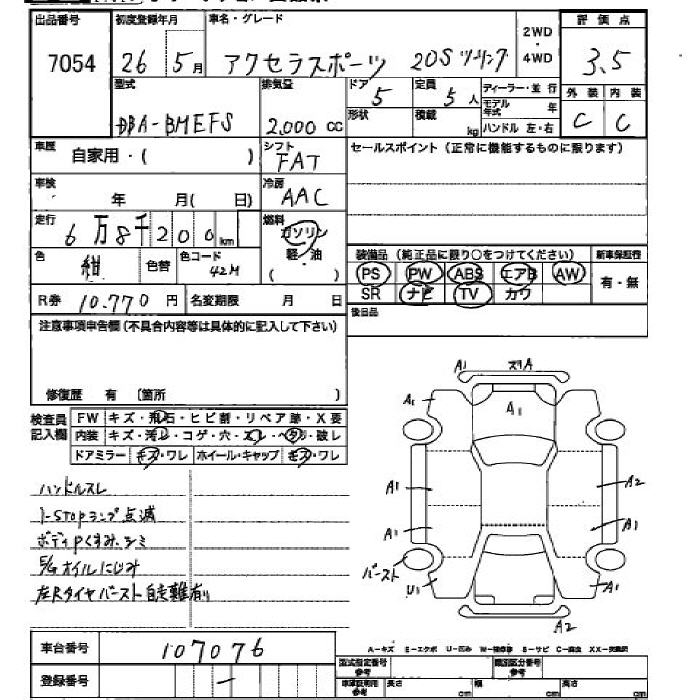 出品番号 初度登録年月 車名・グレード 2WD・4WD 評価点
7054 26 5月 アクセラスポーツ 20Sツーリング 3.5
型式 排気量 ドア 5 定員 5人 ディーラー・並行 外装 内装
モデル年式 年
DBA-BMEFS 2,000cc 形状 積載 kg ハンドル 左・右 C C
車歴 自家用・( ) シフト FAT セールスポイント(正常に機能するものに限ります)
車検 年 月( 日) 冷房 AAC
走行 6万8千200km 燃料 ガソリン
軽・油
( )
色 紺 色替 色コード 42M
装備品(純正品に限り○をつけてください) 新車保証行
PS PW ABS エアB AW 有・無
SR ナビ TV カワ
R券 10.770円 名変期限 月 日 後日品
注意事項申告欄(不具合内容等は具体的に記入して下さい)
修復歴 有 〔箇所 〕
検査員記入欄
FW キズ・飛石・ヒビ割・リペア跡・X要
内装 キズ・汚レ・コゲ・穴・スレ・ヘタリ・破レ
ドアミラー キズ・ワレ ホイール・キャップ キズ・ワレ
ハンドルスレ
i-STOPランプ点滅
E/Gオイルにじみ
左Rタイヤバースト自走難有り
A1
A1
A1
A1
A2
A1
A1
バースト
U1
A1
A2
車台番号 107076
登録番号 -
A-キズ E-エクボ U-凹み
型式指定番号 参考 類別区分番号 参考
長さ cm 幅 cm 高さ cm